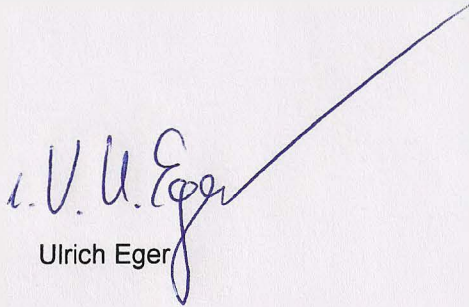 i.V. U. Eger
Ulrich Eger